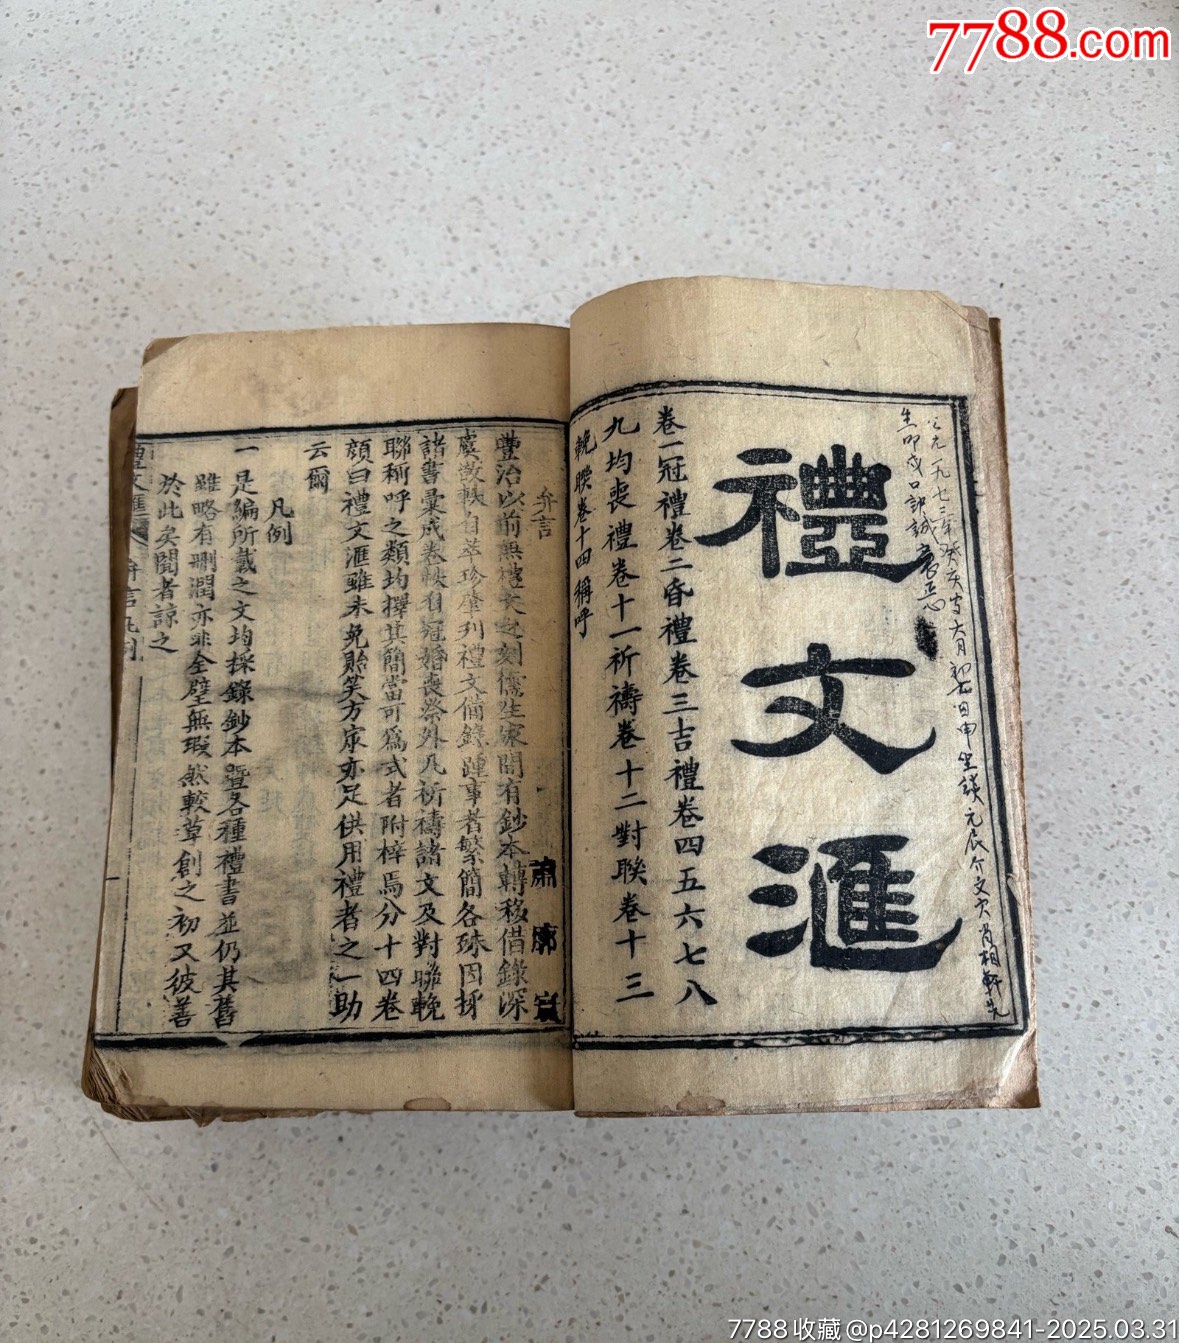 7788.com
禮文滙
卷一冠禮卷二昏禮卷三吉禮卷四五六七八
九均喪禮卷十一祈禱卷十二對聯卷十三
輓聯卷十四稱呼
弁言
豐治以前無禮文之刻儒生家間有鈔本轉移借錄深
虞散軼自萃珍摩列禮文備錄踵事者繁簡各殊因採
諸書彙成卷帙自冠婚喪祭外凡祈禱諸文及對聯輓
聯稱呼之類均擇其簡當可為式者附梓焉分十四卷
顏曰禮文滙雖未免貽笑方家亦足供用禮者之一助
云爾
凡例
一是編所載之文均採錄鈔本暨各種禮書並仍其舊
雖略有刪潤亦非全璧無瑕然較草創之初又彼善
於此矣閱者諒之
禮文滙
弁言凡例
7788收藏@p4281269841-2025.03.31